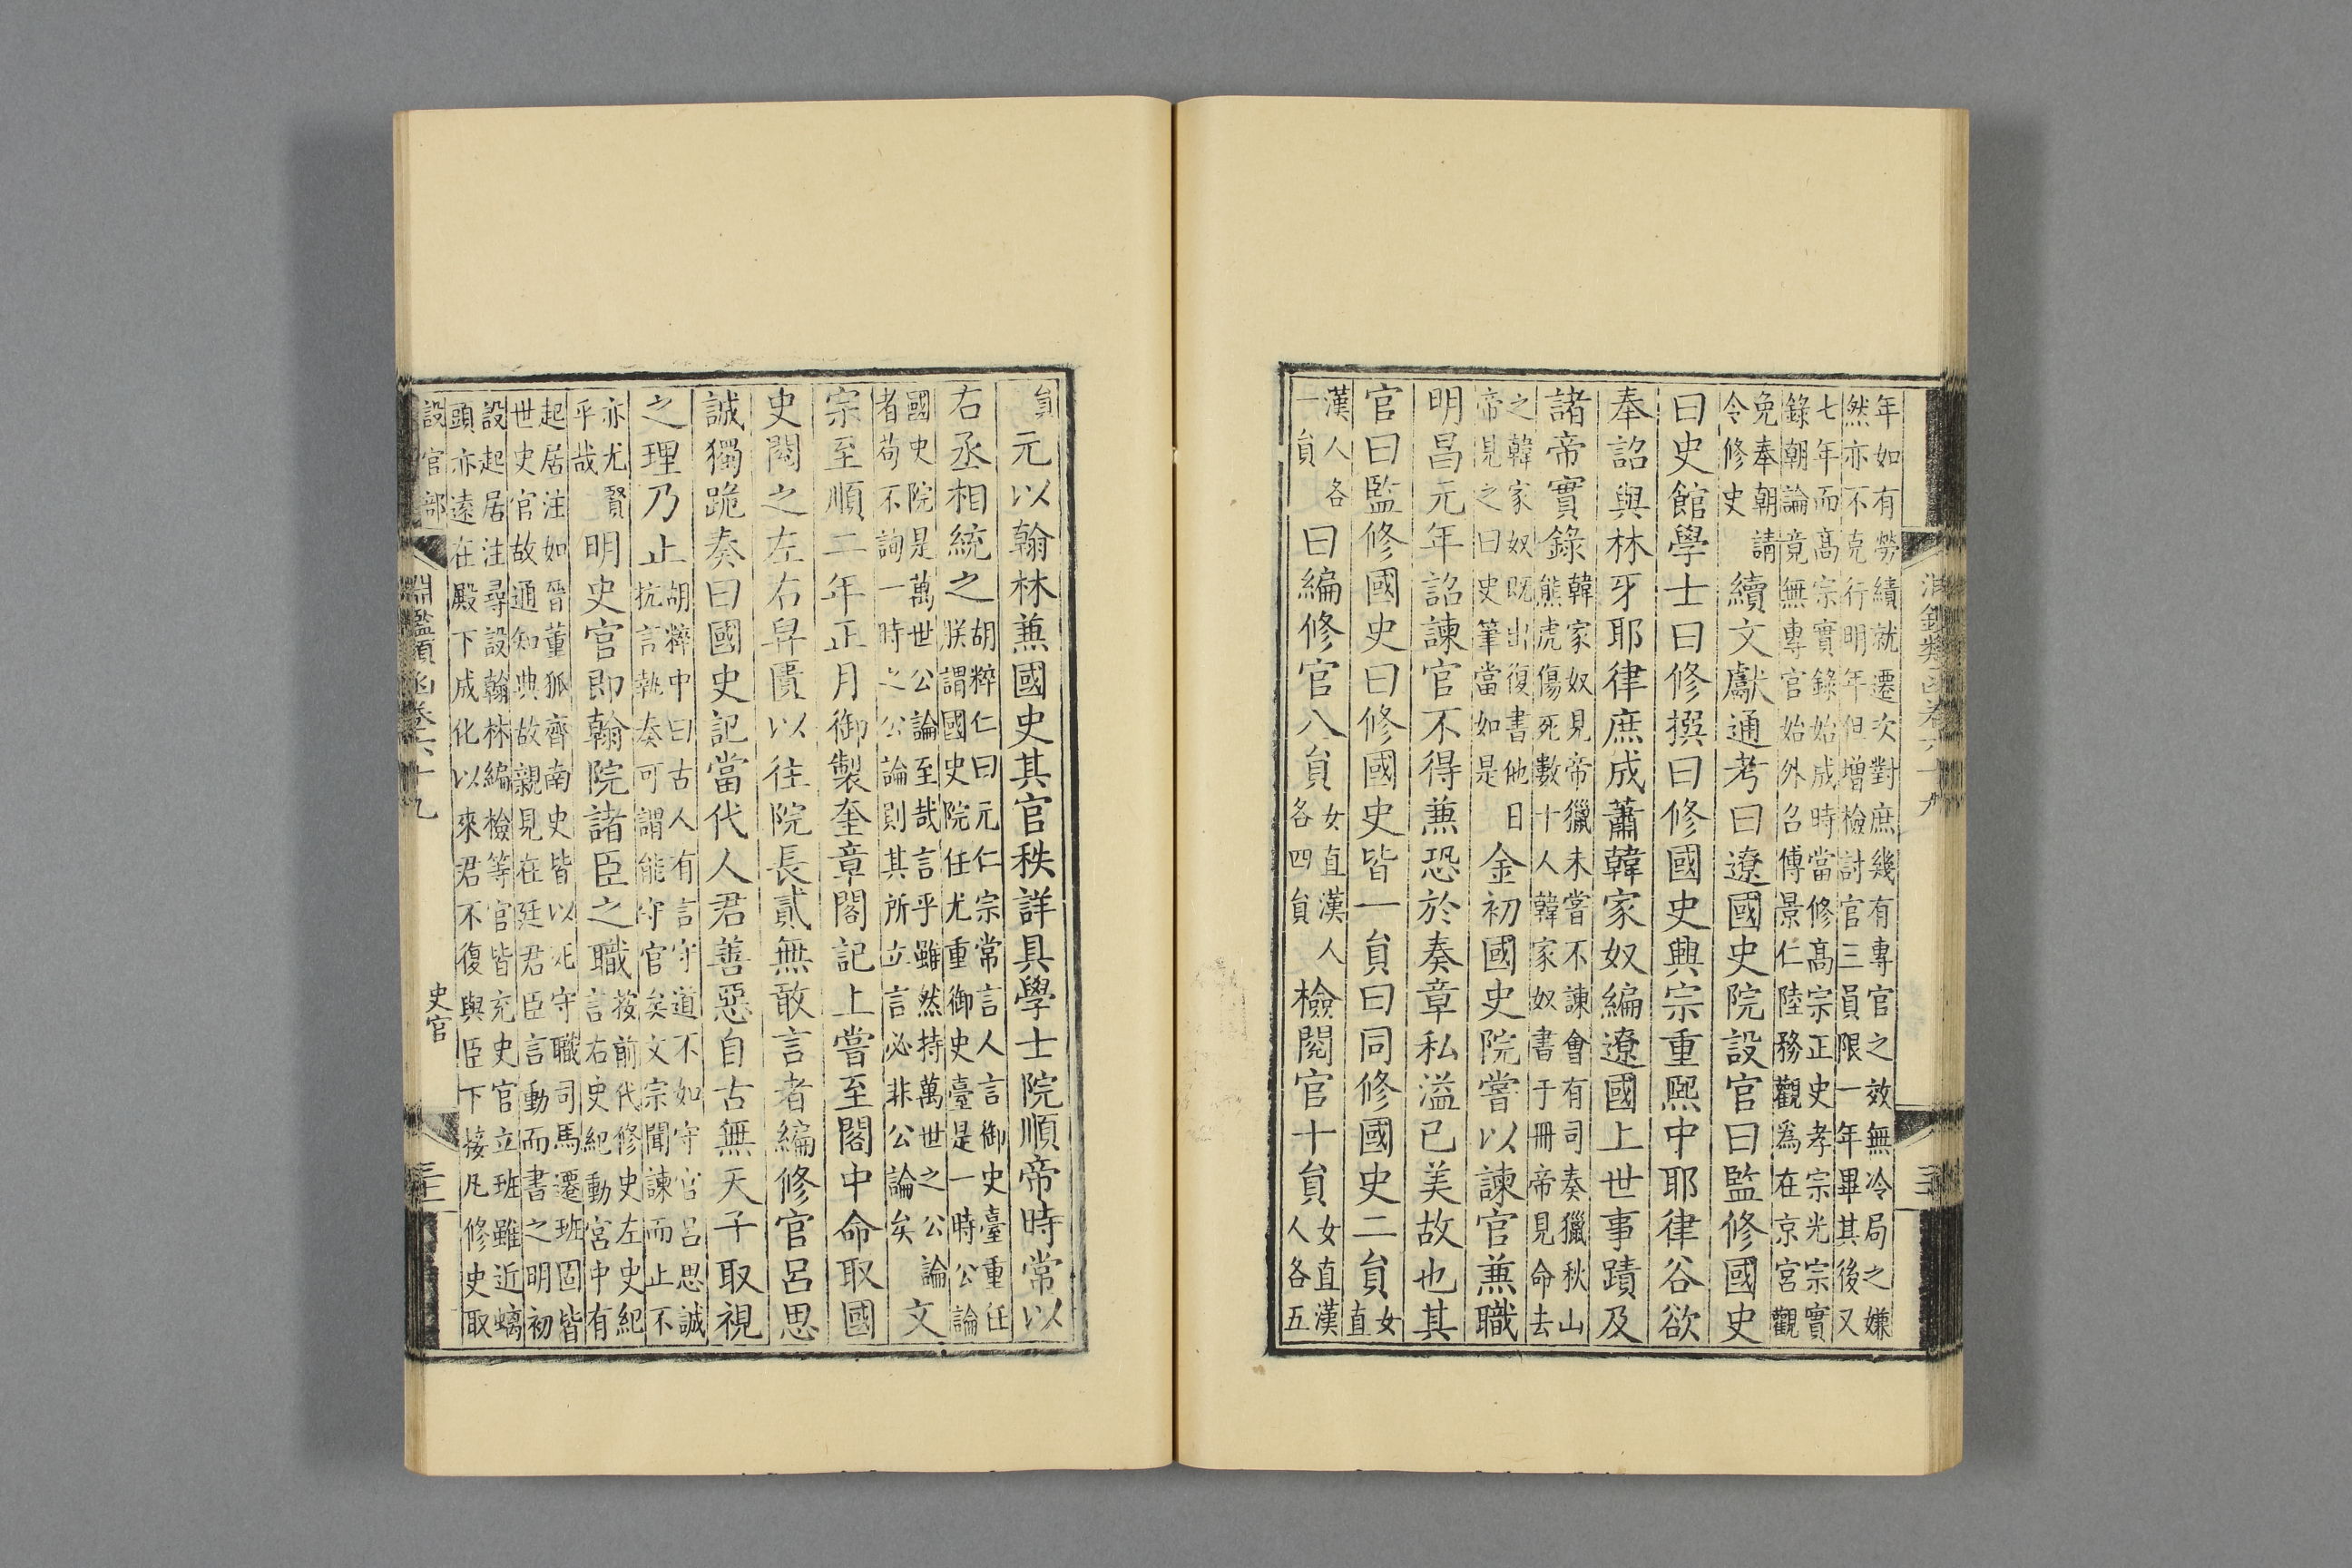 淵鑑類函卷六十九
三
年如有勞績就遷次對庶幾有專官之效無冷局之嫌
然亦不克行明年但增檢討官三員限一年畢其後又
七年而髙宗實錄始成時當修髙宗正史孝宗光宗實
錄朝論竟無專官始外召傅景仁陸務觀爲在京宮觀
免奉朝請
令修史
續文獻通考曰遼國史院設官曰監修國史
曰史館學士曰修撰曰修國史興宗重熙中耶律谷欲
奉詔與林牙耶律庶成蕭韓家奴編遼國上世事蹟及
諸帝實錄
韓家奴見帝獵未嘗不諫會有司奏獵秋山
熊虎傷死數十人韓家奴書于冊帝見命去
之韓家奴既出復書他日
帝見之曰史筆當如是
金初國史院嘗以諫官兼職
明昌元年詔諫官不得兼恐於奏章私溢已美故也其
官曰監修國史曰修國史皆一員曰同修國史二員
女
直
漢人各
一員
曰編修官八員
女直漢人
各四員
檢閱官十員
女直漢
人各五
員
元以翰林兼國史其官秩詳具學士院順帝時常以
右丞相統之
胡粹仁曰元仁宗常言人言御史臺重任
朕謂國史院任尤重御史臺是一時公論
國史院是萬世公論至哉言乎雖然持萬世之公論
者苟不詢一時之公論則其所立言必非公論矣
文
宗至順二年正月御製奎章閣記上嘗至閣中命取國
史閱之左右舁匱以往院長貳無敢言者編修官呂思
誠獨跪奏曰國史記當代人君善惡自古無天子取視
之理乃止
胡粹中曰古人有言守道不如守官呂思誠
抗言執奏可謂能守官矣文宗聞諫而止不
亦尤賢
乎哉
明史官即翰院諸臣之職
按前代修史左史紀
言右史紀動宮中有
起居注如晉董狐齊南史皆以死守職司馬遷班固皆
世史官故通知典故親見在廷君臣言動而書之明初
設起居注尋設翰林編檢等官皆充史官立班雖近螭
頭亦遠在殿下成化以來君不復與臣下接凡修史取
設官部
淵鑑類函卷六十九
史官
三